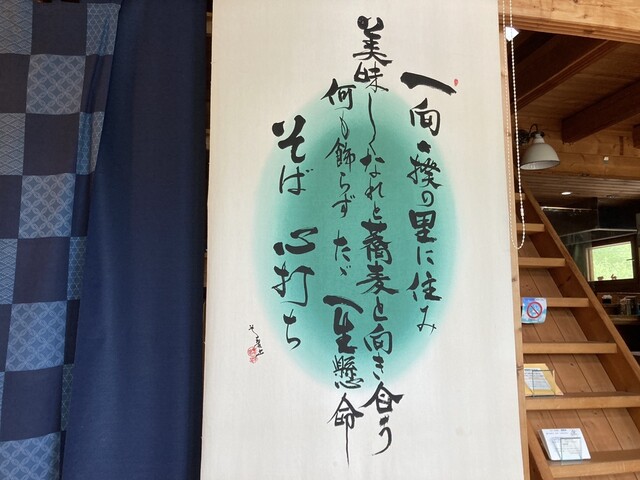 一向一揆の里に住み
美味しくなれと蕎麦と向き合う
何も飾らず ただ 一生懸命
そば 心打ち